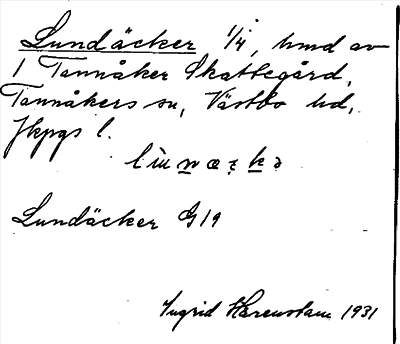 Lundäcker 1/4, hmd av
1 Tannåker Skattegård,
Tannåkers sn, Västbo hd,
Jkpgs l.
Lundäcker G19
Ingrid Harenstam 1931